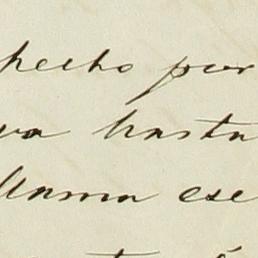 hecho por
va hasta
llama ese